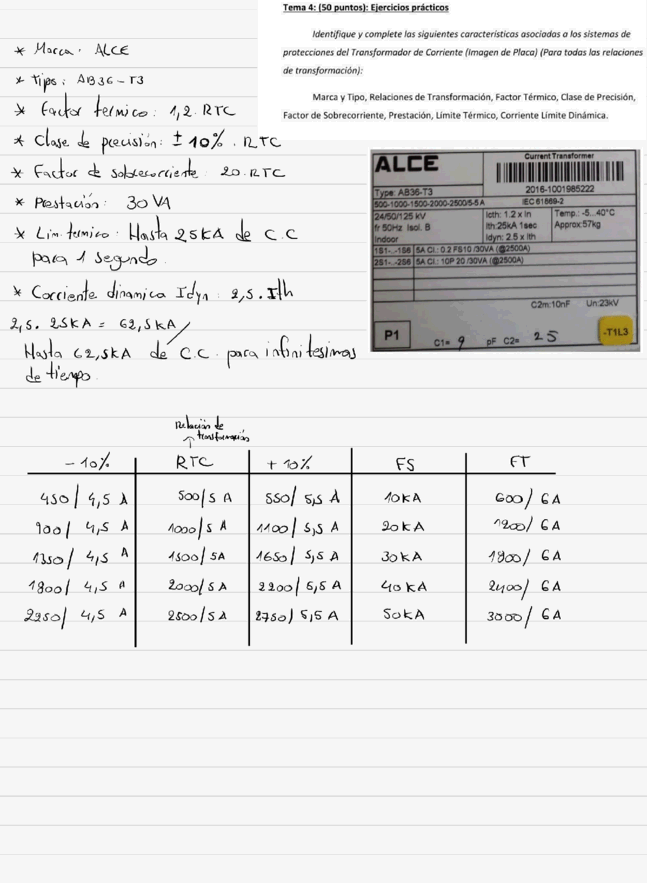 Tema 4: (50 puntos): Ejercicios prácticos
Identifique y complete las siguientes características asociadas a los sistemas de
protecciones del Transformador de Corriente (Imagen de Placa) (Para todas las relaciones
de transformación):
Marca y Tipo, Relaciones de Transformación, Factor Térmico, Clase de Precisión,
Factor de Sobrecorriente, Prestación, Límite Térmico, Corriente Límite Dinámica.
* Marca: ALCE
* Tipo: AB36-T3
* Factor termico: 1,2. RTC
* Clase de precisión: ± 10% . RTC
* Factor de sobrecorriente: 20.RTC
* Prestación: 30 VA
* Lim. termico: Hasta 25KA de C.C
para 1 segundo.
* Corriente dinamica Idyn: 2,5. Ith
2,5. 25KA = 62,5KA
Hasta 62,5KA de C.C. para infinitesimas
de tiempo.
ALCE
Current Transformer
2016-1001985222
Type: AB36-T3
500-1000-1500-2000-2500/5-5 A
IEC 61869-2
24/50/125 kV
fr 50Hz Isol. B
Indoor
Icth: 1.2 x In
Ith:25kA 1sec
Idyn: 2.5 x Ith
Temp.: -5...40°C
Approx:57kg
1S1-..-1S6 5A Cl.: 0.2 FS10 /30VA (@2500A)
2S1-..-2S6 5A Cl.: 10P 20 /30VA (@2500A)
C2m:10nF Un:23kV
P1
C1= 9 pF C2= 25
-T1L3
Relación de
transformación
-10% RTC +10% FS FT
450/4,5 A 500/5 A 550/5,5 A 10KA 600/6A
900/4,5 A 1000/5 A 1100/5,5 A 20KA 1200/6A
1350/4,5 A 1500/5A 1650/5,5 A 30KA 1800/6A
1800/4,5 A 2000/5A 2200/5,5 A 40KA 2400/6A
2250/4,5 A 2500/5A 2750/5,5 A 50KA 3000/6A